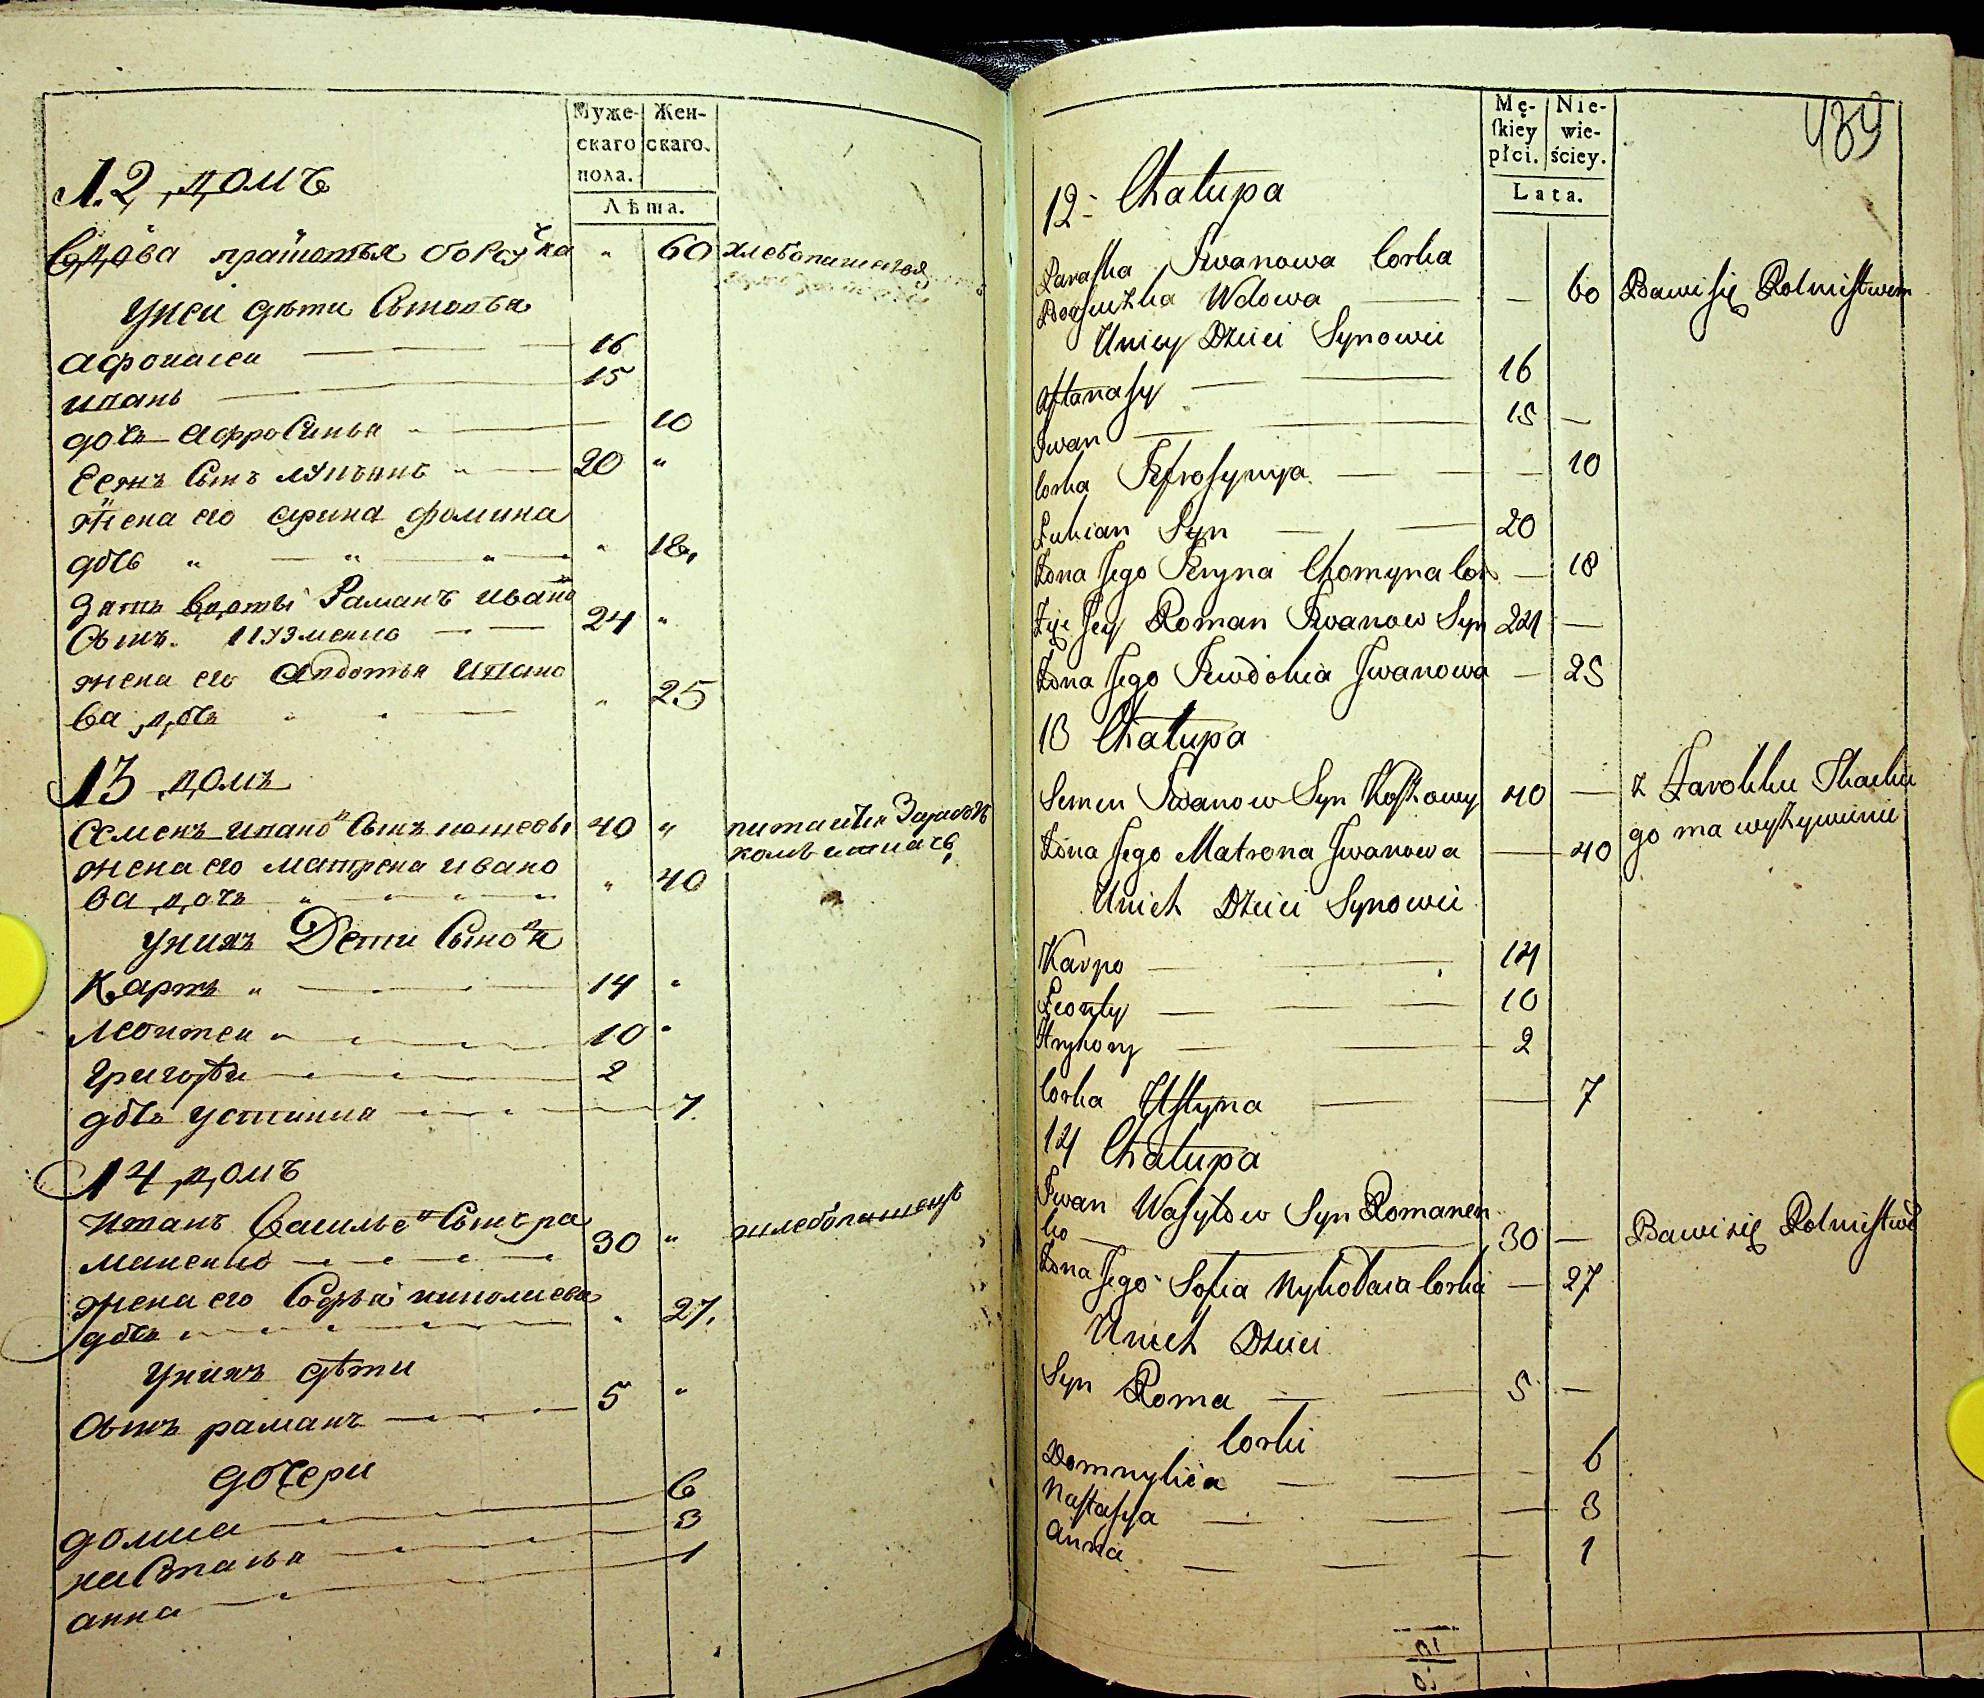 Муже-
скаго
пола.
Жен-
скаго.
Лѣта.
12 домъ
вдова 60 хлебопашест
Унеи дѣти
афонасеи 16
иванъ 15
дочь афросинья 10
сынъ 20
жена его арина фомина
дочь 18
зять Раманъ ивано
сынъ 24
жена его авдотья ивано
ва дочь 25
13 домъ
семенъ ивано сынъ 40
жена его матрена ивано
ва дочь 40
унихъ Дети
Карпъ 14
леонтеи 10
григореи 2
дочь устинна 7
14 домъ
иванъ василье сынъ ра
маненко 30
жена его софья
дочь 27
унихъ дѣти
сынъ раманъ 5
дочери
домна 6
настасья 3
анна 1
Mę-
ſkiey
płci.
Nie-
wie-
ściey.
Lata.
439
12 Chałupa
Paraſka Iwanowa Corka
Wdowa 60 Bawi ſię Rolnictwem
Uniey Dzieci Synowie
Aftanaſy 16
Iwan 15
Corka Jefroſynija 10
Łukian Syn 20
Żona Jego Jeryna Chomyna Cor 18
Jey Roman Iwanow Syn 24
Żona Jego Jewdokia Iwanowa 25
13 Chałupa
Semen Iwanow Syn 40 z Zarobku
Żona Jego Matrona Iwanowa 40 go ma wyżywienie
Unich Dzieci Synowie
Karpo 14
Leonty 10
Hryhory 2
Corka Uſtyna 7
14 Chałupa
Iwan Waſylow Syn Romanen
ko 30 Bawi się Rolnictwē
Żona Jego Sofia Corka 27
Unich Dzieci
Syn Roma 5
Corki
Domnykia 6
Naſtaſya 3
Anna 1